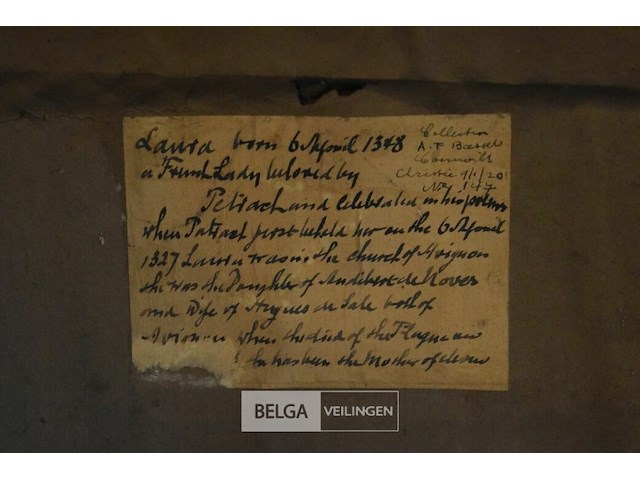 Laura born 6 April 1348
a French Lady beloved by
Petrach and Celebrated in his poems
when Patrach first beheld her on the 6 April
1327 Laura was in the church of Avignon
she was the Daughter of Andibert de Noves
and Wife of Hugues de Sale both of
Avignon when she died of the Plague
she has been the Mother of eleven
Collection
A.F
Christie 9/1/20
No 147
BELGA VEILINGEN